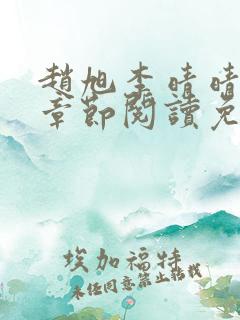 趙旭李晴晴
章節閱讀免
埃加福特
未经同意禁止转载